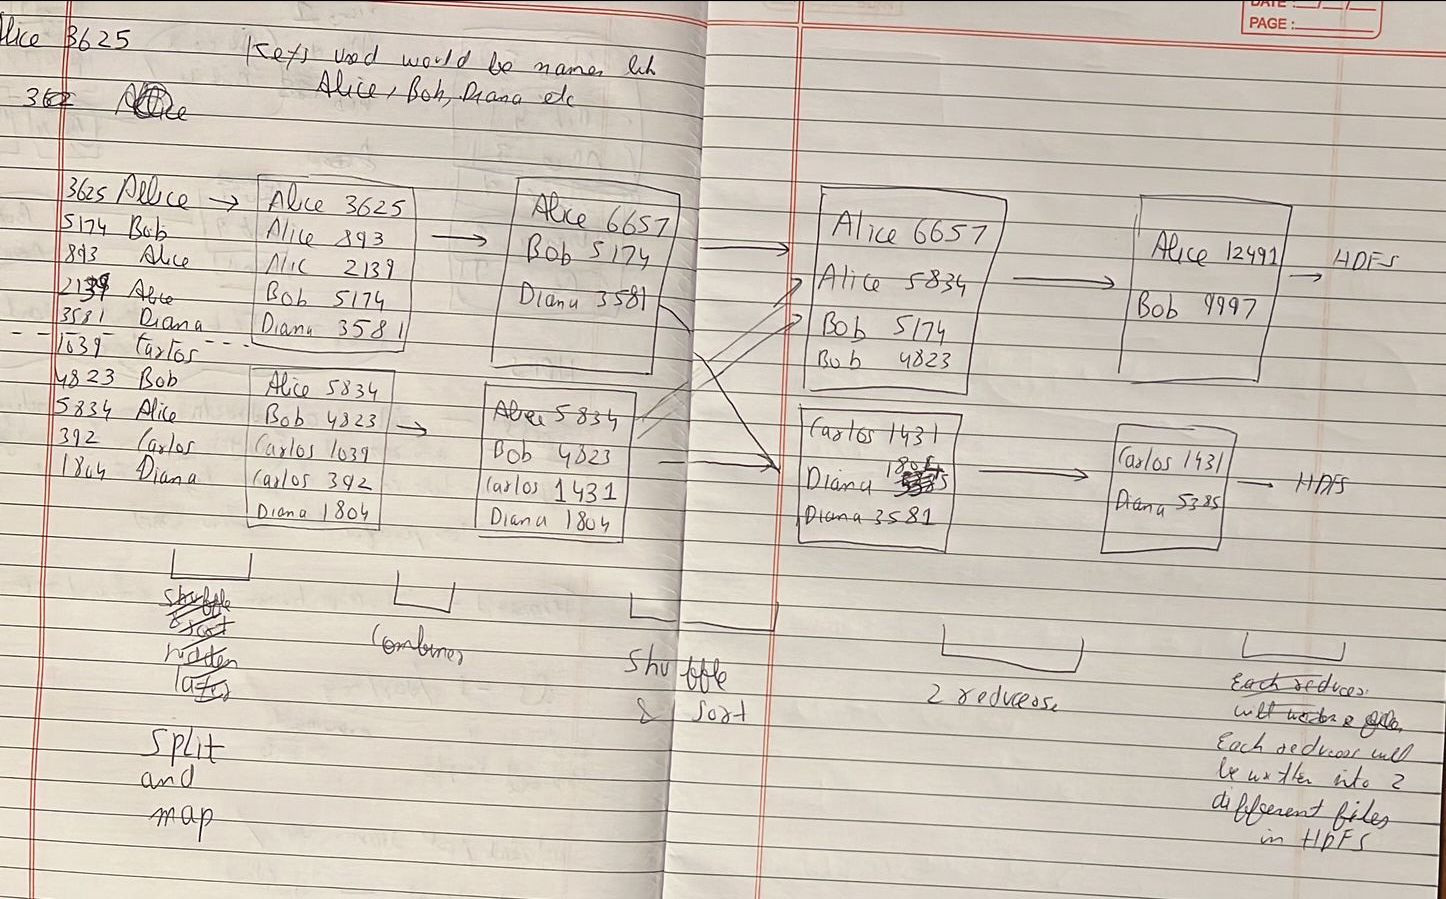 DATE:__/__/__
PAGE:
Alice 3625
Keys used would be names
Alice, Bob, Diana etc
362
3625 Allice → Alice 3625
5174 Bob
893 Alice
2139 Alice
3581 Diana
1039 Carlos
4823 Bob
5834 Alice
392 Carlos
1804 Diana
Alice 893
Alic 2139
Bob 5174
Diana 3581
Alice 5834
Bob 4823
Carlos 1039
Carlos 392
Diana 1804
Alice 6657
Bob 5174
Diana 3581
Alice 5834
Bob 4823
Carlos 1431
Diana 1804
Alice 6657
Alice 5834
Bob 5174
Bob 4823
Carlos 1431
Diana 1804
Diana 3581
Alice 12491 → HDFS
Bob 9997
Carlos 1431
Diana 5385 → HDFS
Shuffle
& sort
hidden
later
Split
and
map
Combiner
Shuffle
& sort
2 reducerse
Each reducer
will
Each reducer will
be written into 2
different files
in HDFS